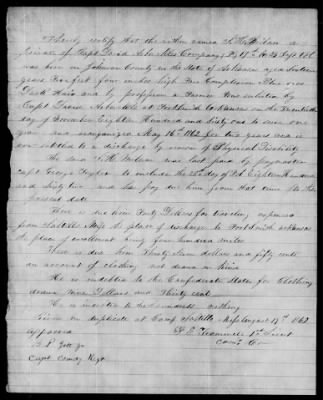 I hereby certify that the within named
Private of Capt David Arbuckles Company
was born in Johnson County in the State of Arkansas aged Sixteen
years Five feet four inches high Fair Complexion Blue eyes
Dark Hair and by profession a Farmer Was enlisted by
Capt David Arbuckle at Fort Smith Arkansas on the Twentieth
day of November Eighteen Hundred and Sixty one to serve one
year and reorganized May 16th 1862 for two years and is
now entitled to a discharge by reason of Physical Disability
The said was last paid by paymaster
Capt George Taylor to include the day of Feb Eighteen Hundred
and Sixty two and has pay due him from that time to the
present date
There is due him Forty Dollars for traveling expenses
from Saltillo Miss the place of discharge to Fort Smith Arkansas
the place of enrollment being four hundred miles
There is due him Thirty Seven dollars and fifty cents
on account of clothing not drawn in kind
He is indebted to the Confederate States for Clothing
drawn Nine Dollars and Thirty cents
He is indebted to the nothing
Given in duplicate at Camp Saltillo Miss August 17th 1862
approved 1st Lieut
Comg Co
Capt Comdg Regt